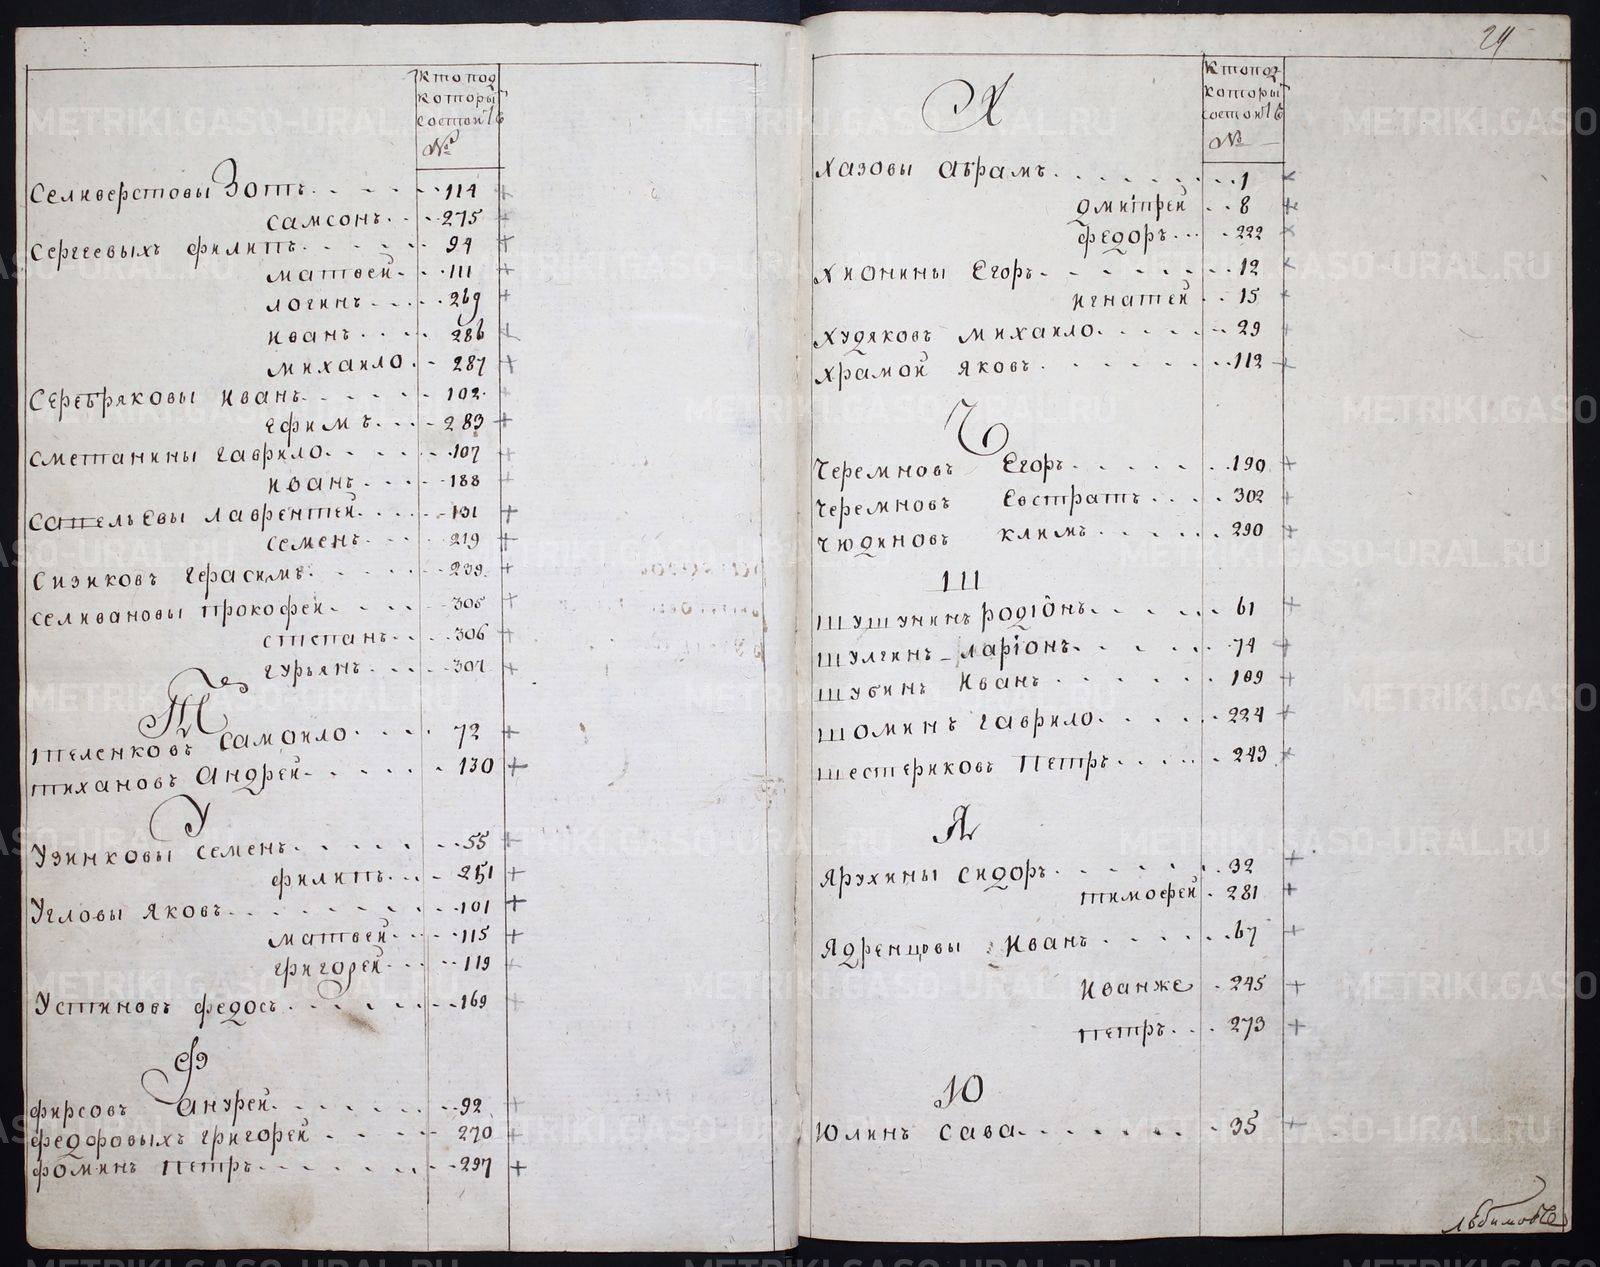 Кто под
которы
состоитъ
№
Селиверстовы Зотъ 114
самсонъ 275
Сергеевыхъ филипъ 94
матвей 111
логинъ 269
иванъ 286
михаило 287
Серебряковы иванъ 102
ефимъ 283
сметанины гаврило 107
иванъ 188
сапельевы лаврентей 131
семенъ 219
Сизиковъ герасимъ 239
селивановы прокофей 305
степанъ 306
гурьянъ 307
Т
теленковъ самоило 72
тихановъ Андрей 130
У
Узинковы семенъ 55
филипъ 251
Угловы яковъ 101
матвей 115
григорей 119
Устиновъ федосъ 169
Ф
фирсовъ андрей 92
федоровыхъ григорей 270
фоминъ петръ 297
24
Х
Кто под
которы
состоитъ
№
Хазовы абрамъ 1
дмитрей 8
федоръ 222
Хионины Егоръ 12
игнатей 15
Худяковъ михаило 29
Храмой яковъ 112
Ч
Черемновъ Егоръ 190
Черемновъ Евстратъ 302
Чюдиновъ климъ 290
Ш
Шушунинъ родіонъ 61
Шулгинъ ларіонъ 74
Шубинъ Иванъ 109
Шоминъ гаврило 224
Шестериковъ Петръ 243
Я
Ярухины сидоръ 32
тимофей 281
Ядренцовы Иванъ 67
Иванже 245
петръ 273
Ю
Юлинъ сава 35
METRIKI.GASO-URAL.RU